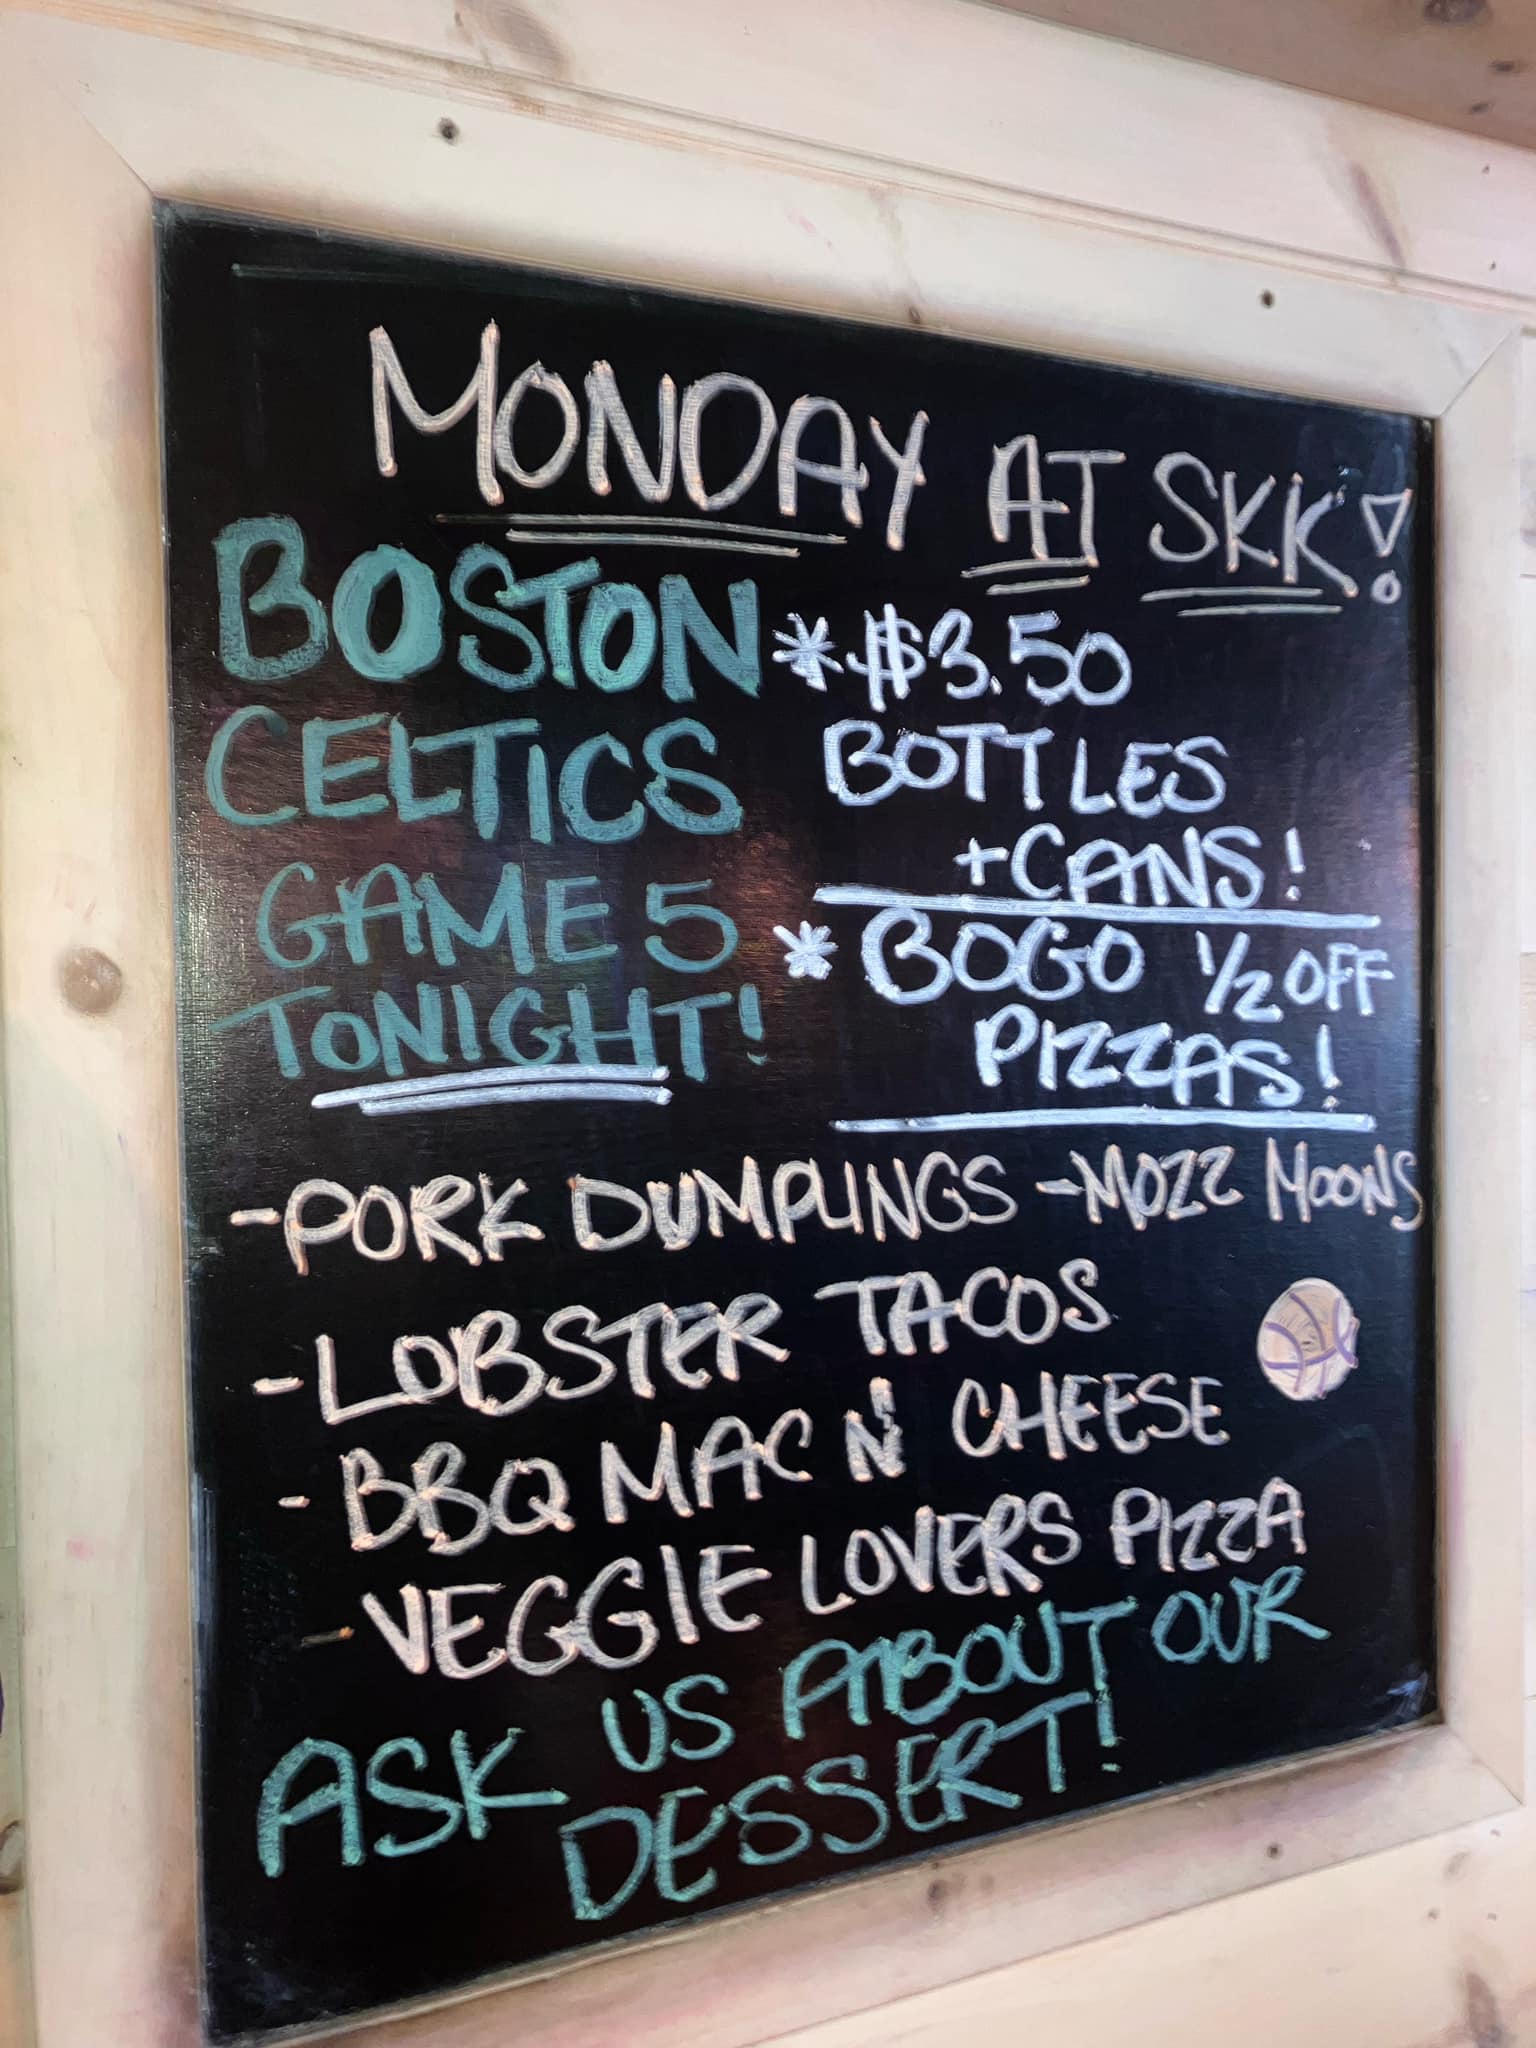 MONDAY AT SKK!
BOSTON
CELTICS
GAME 5
TONIGHT!
* $3.50
BOTTLES
+ CANS!
* BOGO 1/2 OFF
PIZZAS!
- PORK DUMPLINGS - MOZZ MOONS
- LOBSTER TACOS
- BBQ MAC N' CHEESE
- VEGGIE LOVERS PIZZA
ASK US ABOUT OUR
DESSERT!